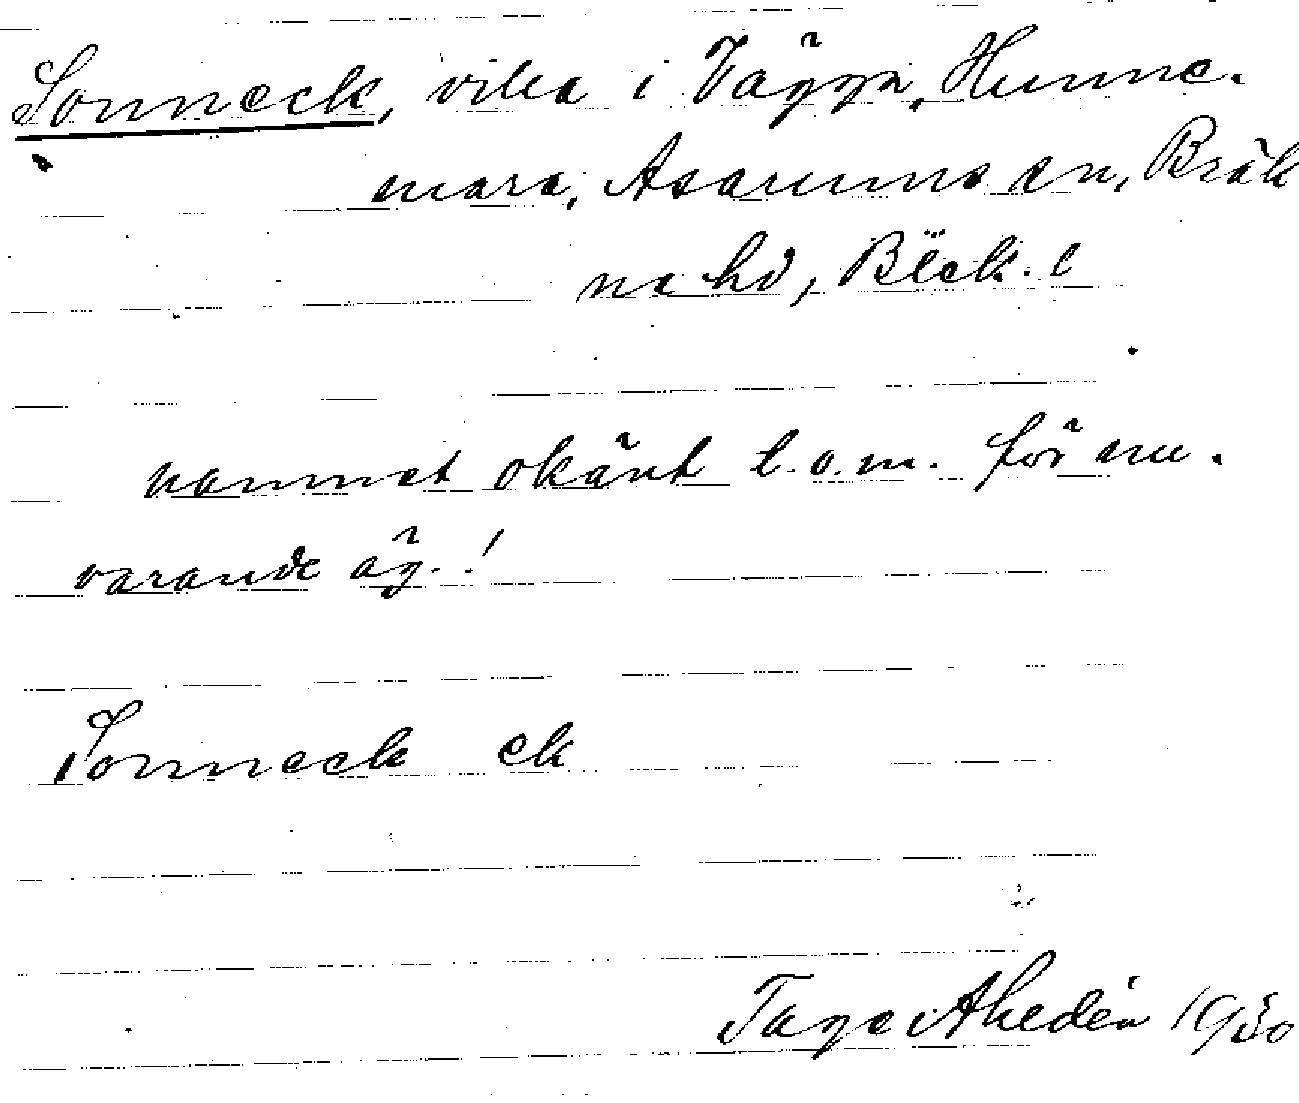 Sonneck, villa i Väggа, Hunne-
mara, Asarums sn, Bräk
ne hd, Bleck. l
namnet okänt t.o.m. för nu-
varande äg.!
Sonneck ek
Tage Ahedén 1930